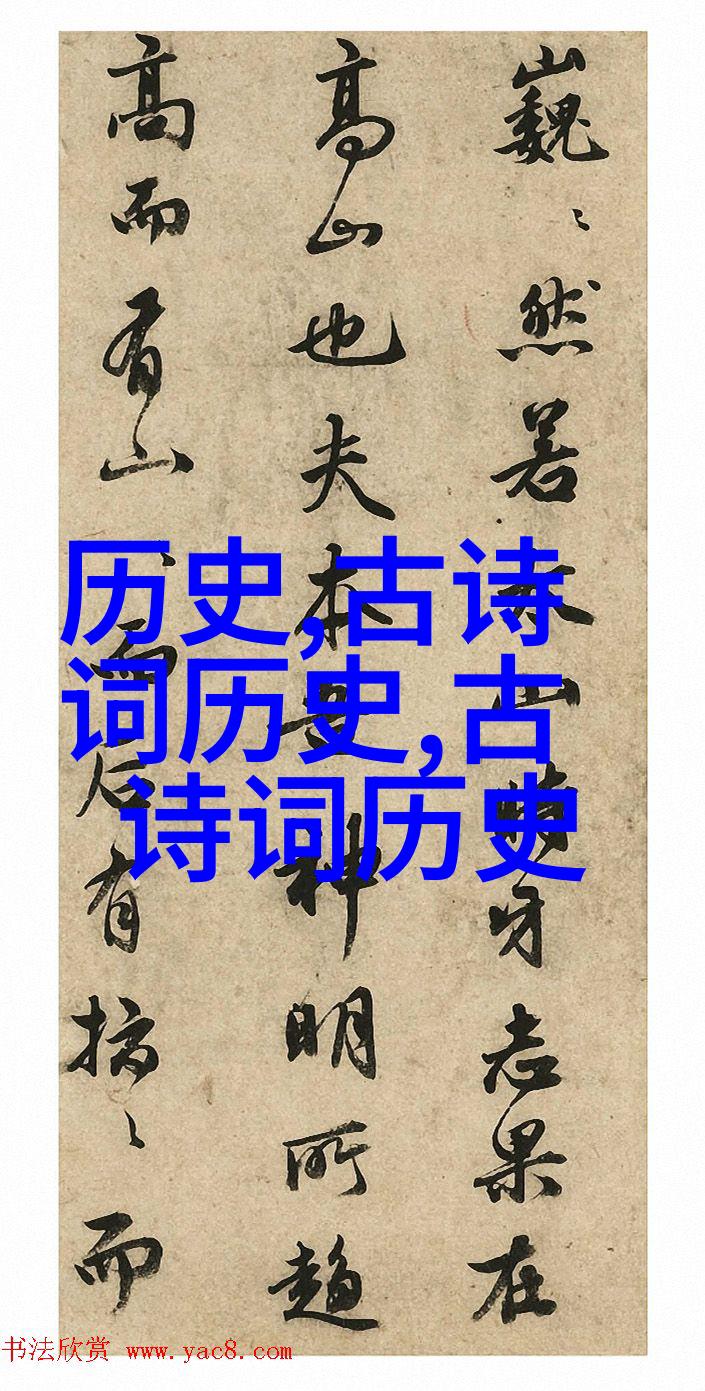 巍〻然若山時牙志果在
高山也夫本神明所趨
高而有山〻而后有〻而
历史,古诗
词历史,古
诗词历史
书法欣赏 www.yac8.com